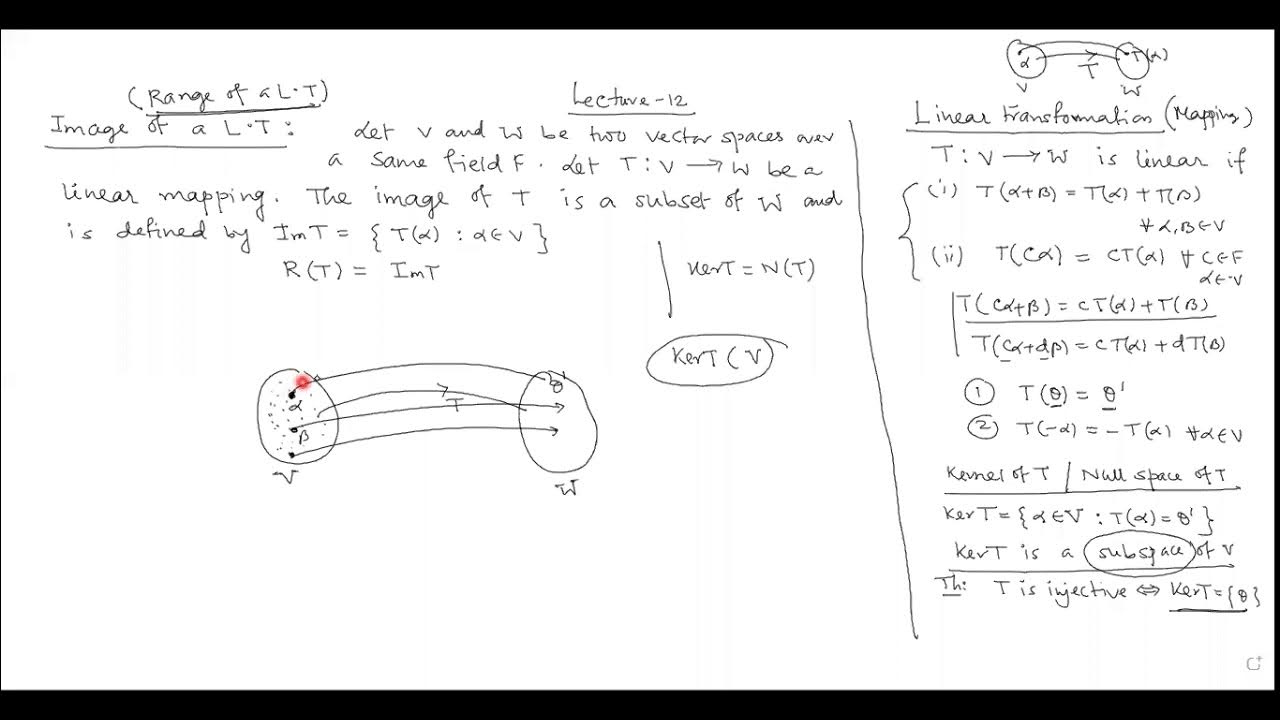 (Range of a L.T)
Lecture-12
Image of a L.T: Let V and W be two vector spaces over
a same field F. Let T: V → W be a
linear mapping. The image of T is a subset of W and
is defined by ImT = { T(α) : α∈V }
R(T) = ImT
KerT = N(T)
KerT ( V
α
β
T
θ'
V
W
α T(α)
T
V W
Linear transformation (Mapping)
T: V → W is linear if
(i) T(α+β) = T(α) + T(β)
∀ α,β∈V
(ii) T(cα) = cT(α) ∀ c∈F
α∈V
T(cα+β) = cT(α)+T(β)
T(cα+dβ) = cT(α)+dT(β)
① T(θ) = θ'
② T(-α) = -T(α) ∀α∈V
Kernel of T / Null space of T
KerT = {α∈V : T(α)=θ'}
KerT is a subspace of V
Th: T is injective ⇔ KerT={θ}